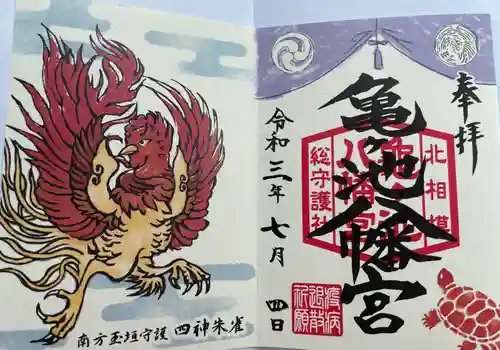 奉拝
亀ヶ池八幡宮
北相模
総守護社
令和三年七月四日
疫病
退散
祈願
南方玉垣守護 四神朱雀